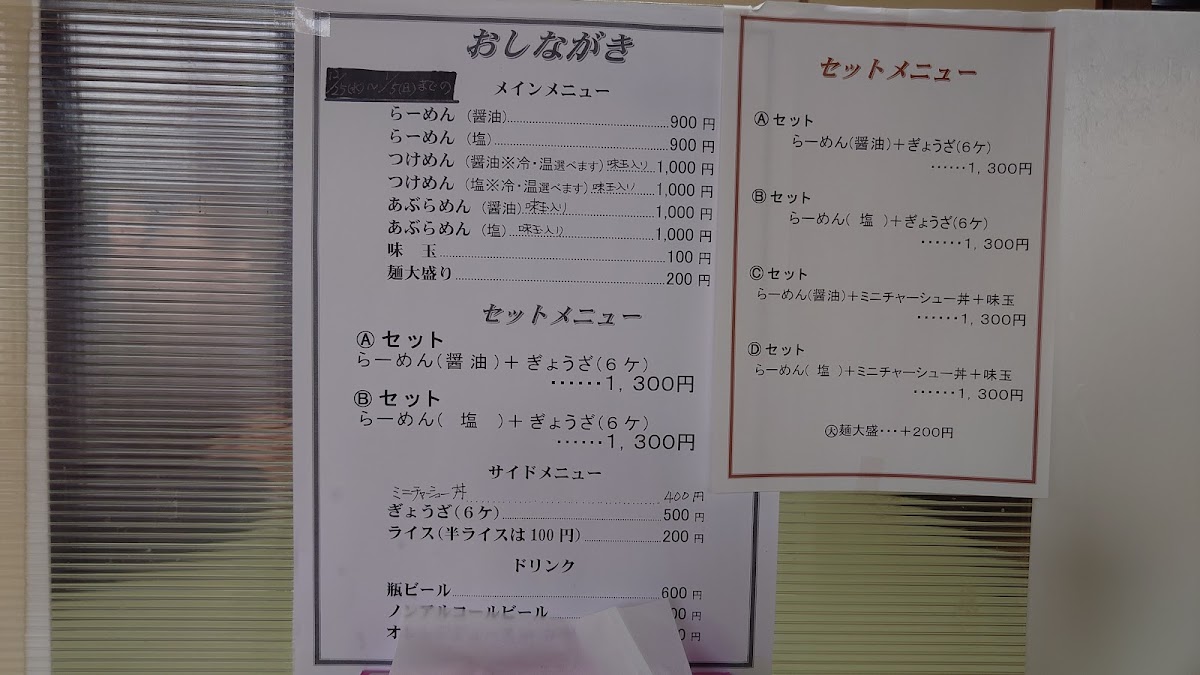 おしながき
12/25(水)～1/5(日)までの
メインメニュー
らーめん(醤油)……900円
らーめん(塩)……900円
つけめん(醤油※冷・温選べます)味玉入り…1,000円
つけめん(塩※冷・温選べます)味玉入り…1,000円
あぶらめん(醤油)味玉入り……1,000円
あぶらめん(塩)…味玉入り……1,000円
味 玉……100円
麺大盛り……200円
セットメニュー
Ⓐセット
らーめん(醤油)＋ぎょうざ(6ケ)
……1,300円
Ⓑセット
らーめん( 塩 )＋ぎょうざ(6ケ)
……1,300円
サイドメニュー
ミニチャーシュー丼……400円
ぎょうざ(6ケ)……500円
ライス(半ライスは100円)……200円
ドリンク
瓶ビール……600円
ノンアルコールビール……00円
オ
0円
セットメニュー
Ⓐセット
らーめん(醤油)＋ぎょうざ(6ケ)
……1,300円
Ⓑセット
らーめん( 塩 )＋ぎょうざ(6ケ)
……1,300円
Ⓒセット
らーめん(醤油)＋ミニチャーシュー丼＋味玉
……1,300円
Ⓓセット
らーめん( 塩 )＋ミニチャーシュー丼＋味玉
……1,300円
㊅麺大盛…＋200円